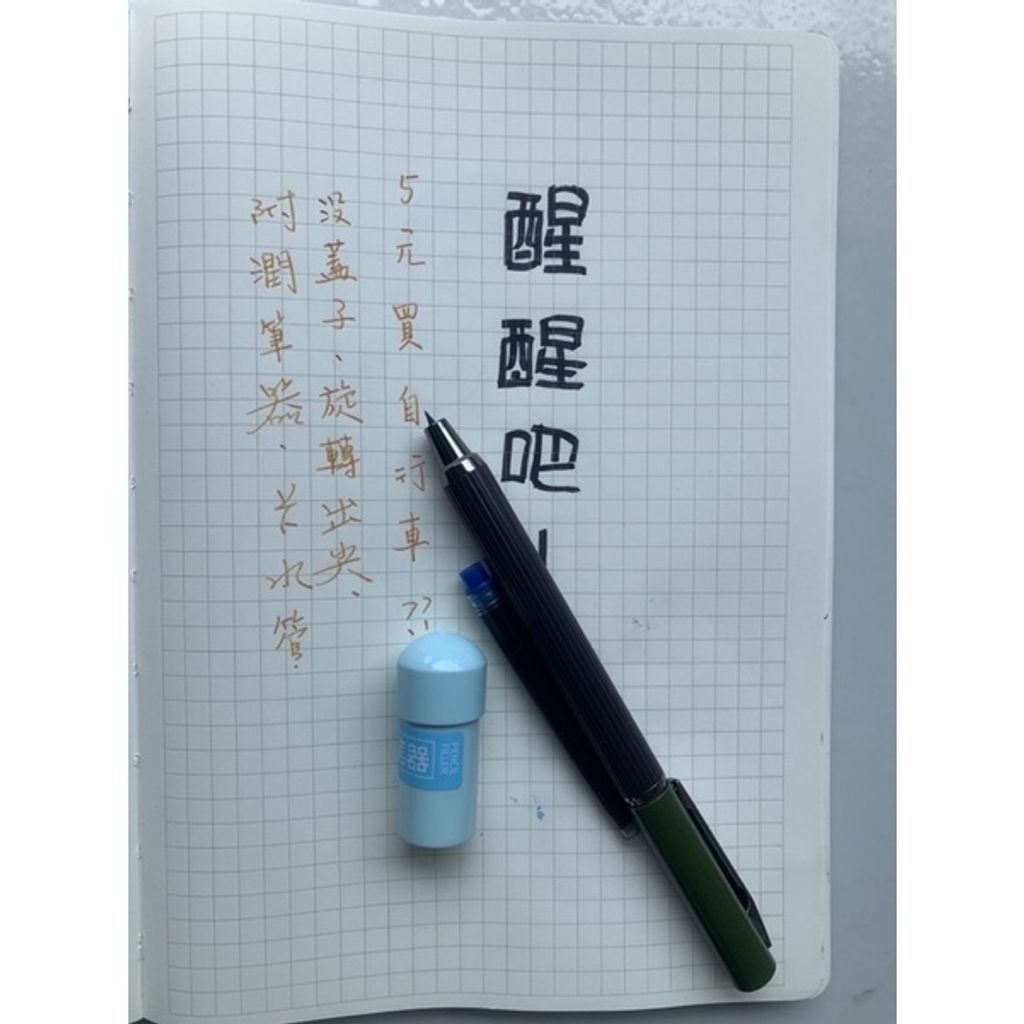 醒醒吧!
5元買自行車??
沒蓋子、旋轉出尖、
附潤筆器、卡水管.
器
PENCIL
FILLER